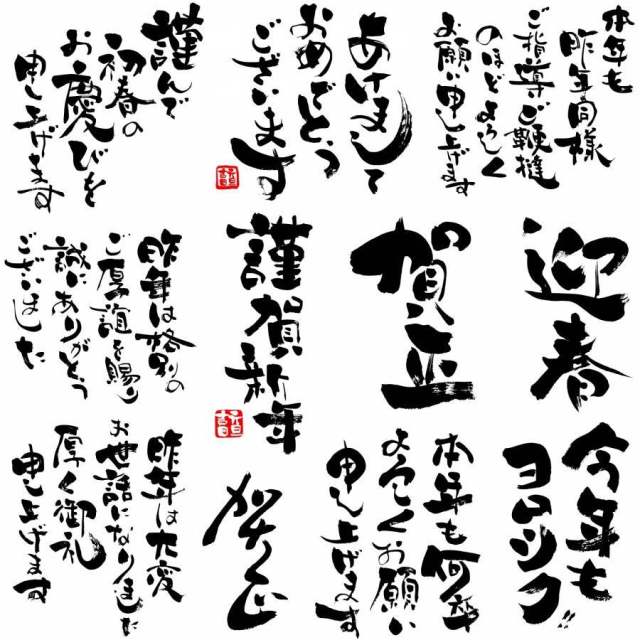 本年も
昨年同様
ご指導ご鞭撻
のほどよろしく
お願い申し上げます
あけまして
おめでとう
ございます
謹んで
初春の
お慶びを
申し上げます
迎春
賀正
謹賀新年
昨年は格別の
ご厚誼を賜り
誠にありがとう
ございました
今年も
ヨロシク!!
本年も何卒
よろしくお願い
申し上げます
賀正
昨年は大変
お世話になりました
厚く御礼
申し上げます